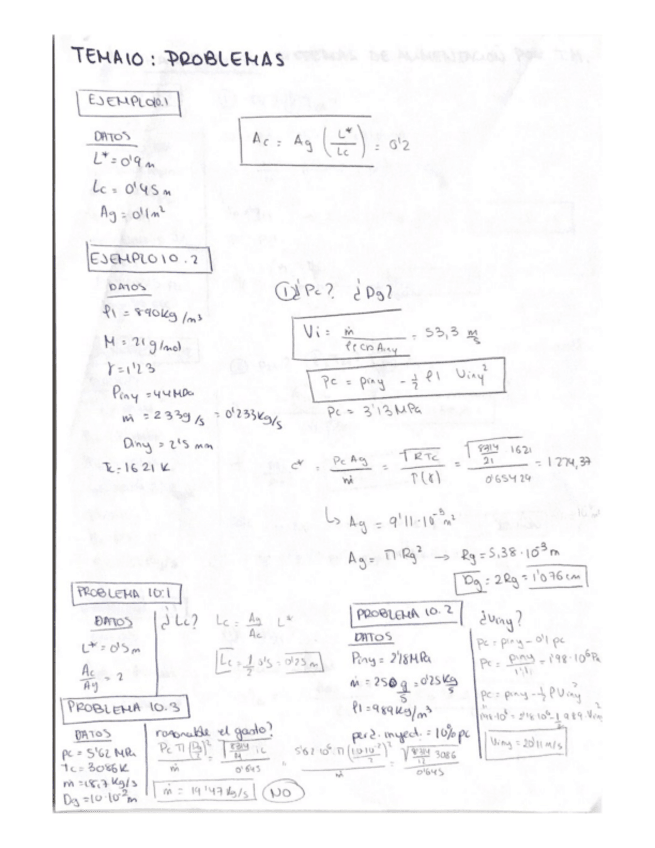 TEMA10: PROBLEMAS
EJEMPLO10.1
DATOS
L* = 0'9 m
Lc = 0'45 m
Ag = 0'1 m²
Ac = Ag (L*/Lc) = 0'2
EJEMPLO10.2
DATOS
ρl = 890 kg/m³
M = 21 g/mol
γ = 1'23
Piny = 4'4 MPa
ṁ = 233 g/s = 0'233 kg/s
Diny = 2'5 mm
Tc = 1621 K
① ¿Pc? ¿Dg?
Vi = ṁ / ρl CD Any = 53,3 m/s
Pc = piny - ½ ρl Viny²
Pc = 3'13 MPa
c* = Pc Ag / ṁ = √(R Tc) / Γ(γ) = √(8314/21 1621) / 0'65424 = 1274,37
↳ Ag = 9'11·10⁻⁵ m²
Ag = π Rg² → Rg = 5.38·10⁻³ m
Dg = 2Rg = 1'076 cm
PROBLEMA 10.1
DATOS
L* = 0'5 m
Ac/Ag = 2
¿Lc? Lc = Ag/Ac L*
Lc = 1/2 0'5 = 0'25 m
PROBLEMA 10.2
DATOS
Piny = 2'18 MPa
ṁ = 250 g/s = 0'25 kg/s
ρl = 989 kg/m³
perd. inyect. = 10% pc
¿Viny?
pc = piny - 0'1 pc
Pc = piny/1'1 = 1'98·10⁶ Pa
pc = piny - ½ ρ Viny
Viny = 20'11 m/s
PROBLEMA 10.3
DATOS
pc = 5'62 MPa
Tc = 3086 K
ṁ = 18,7 kg/s
Dg = 10·10⁻² m
razonable el gasto?
ṁ = 19'47 kg/s NO